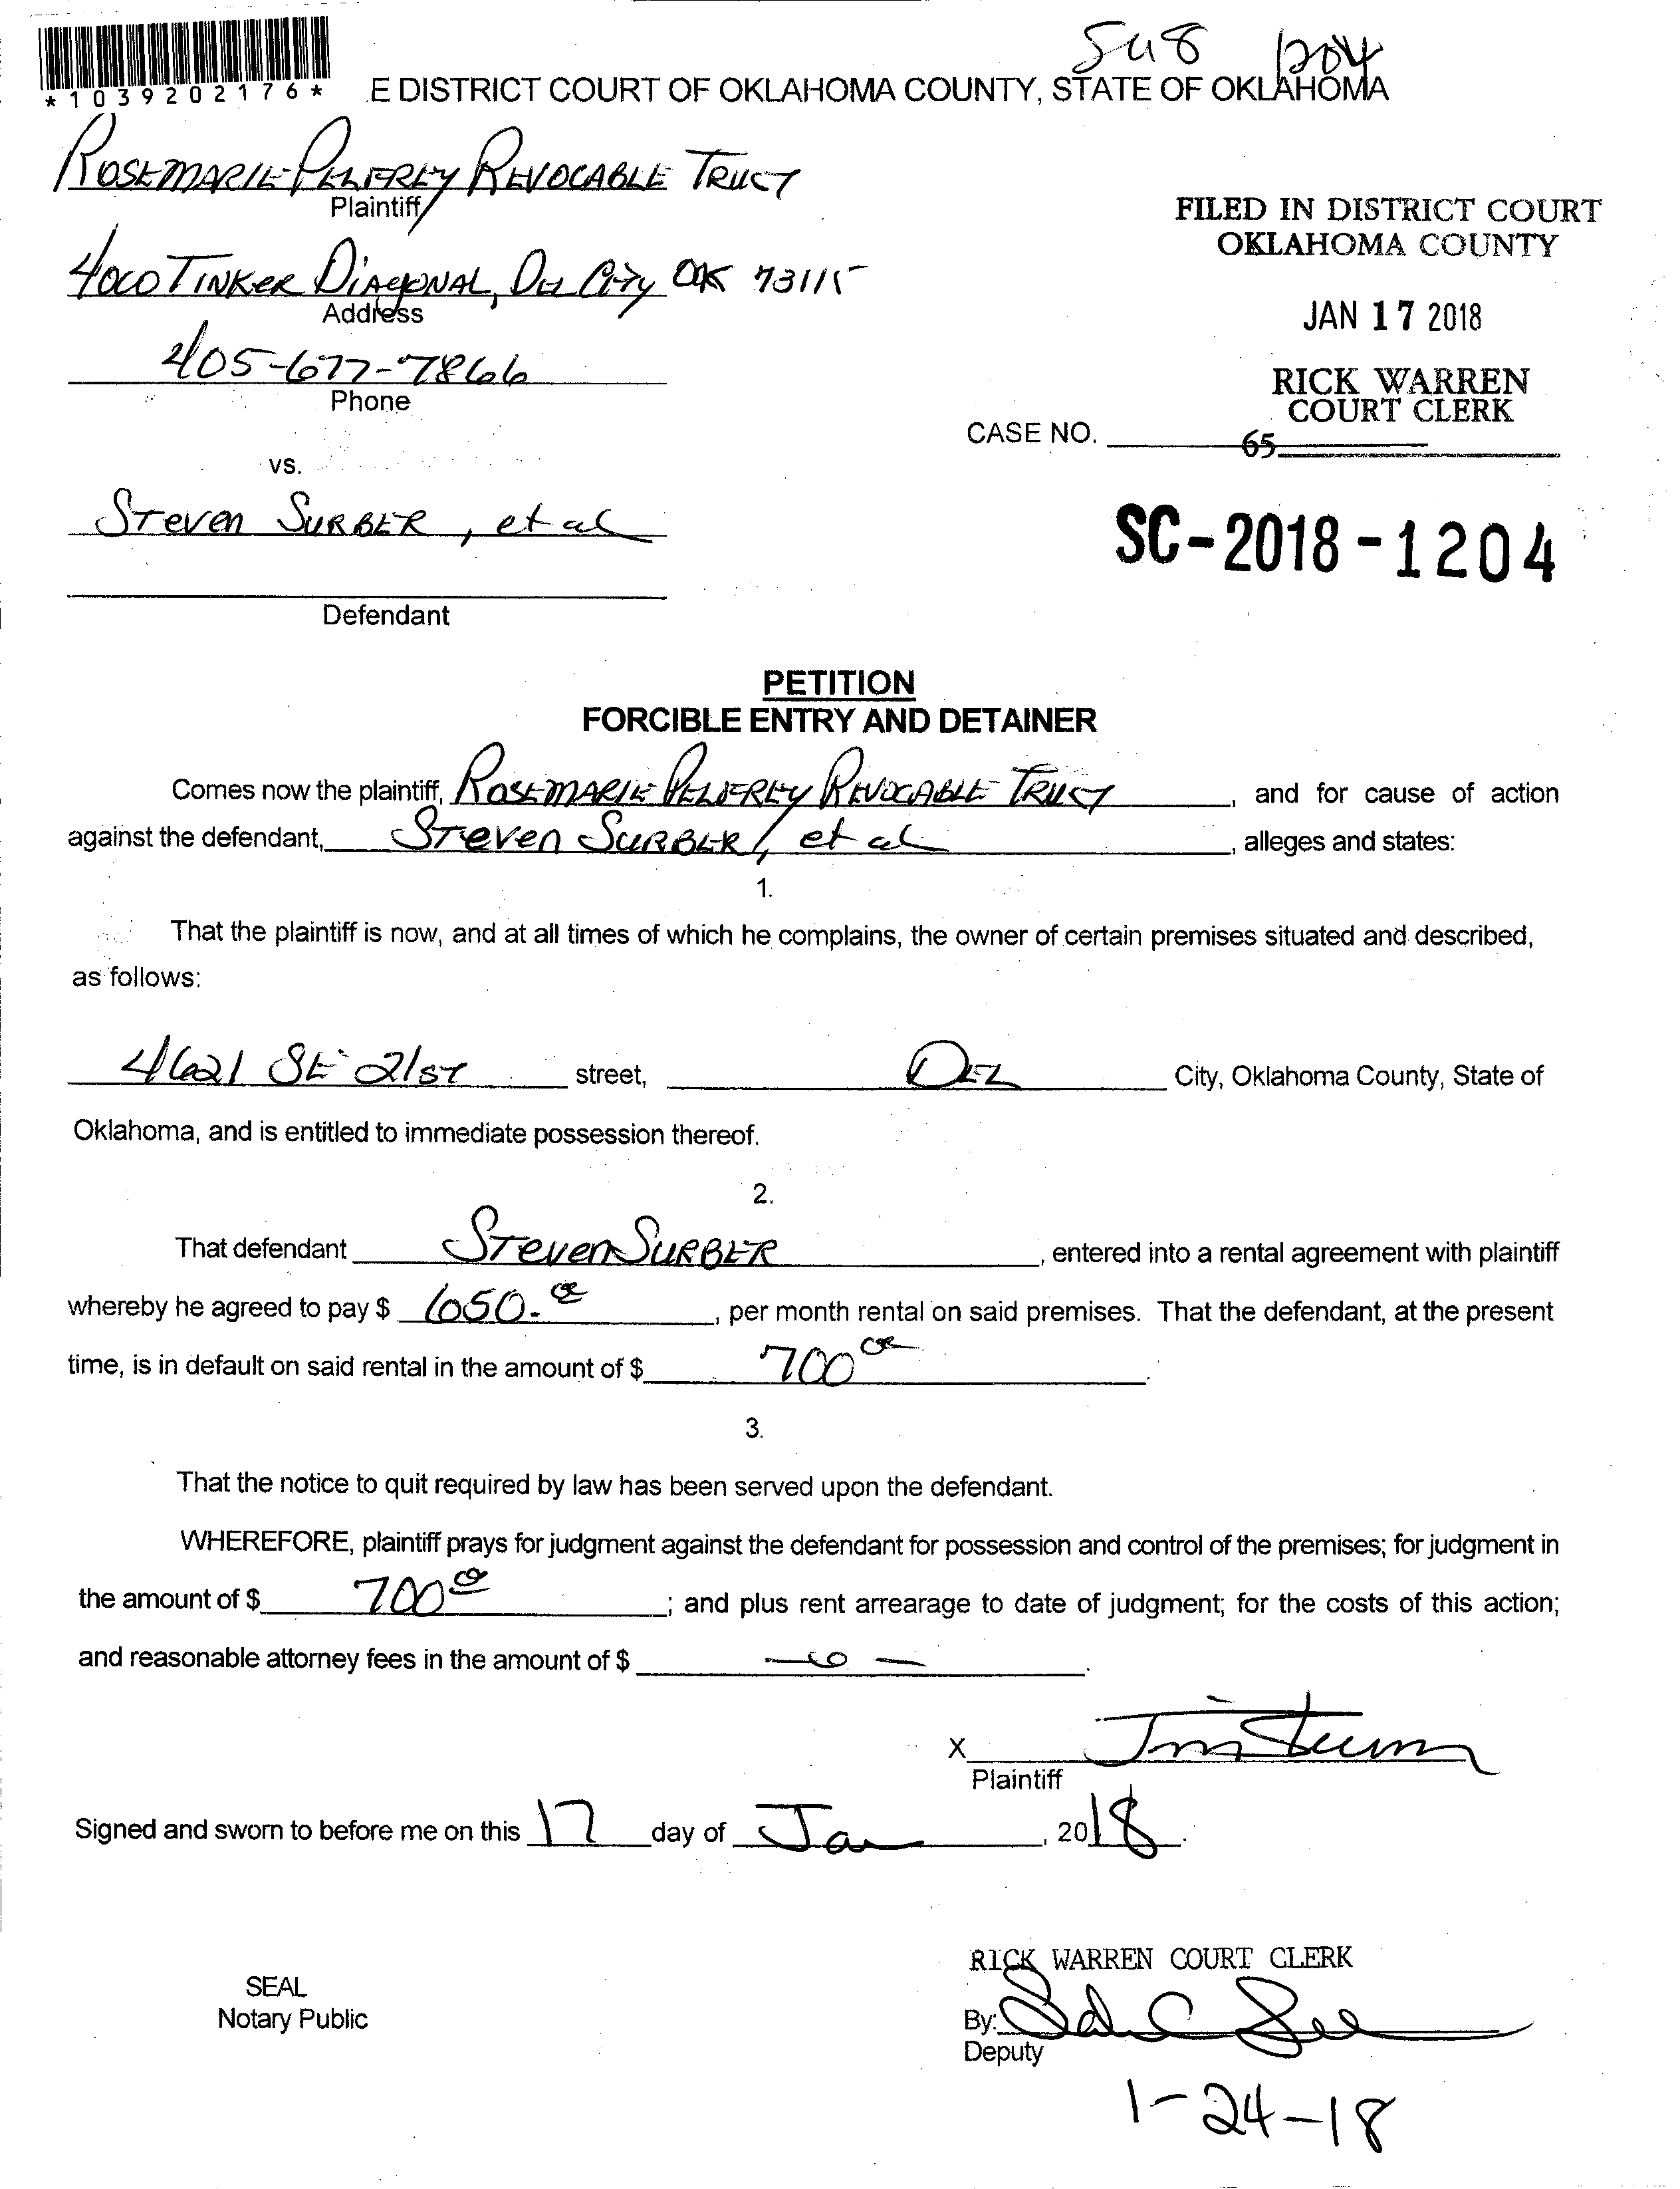 SUB 1204
*1039202176* E DISTRICT COURT OF OKLAHOMA COUNTY, STATE OF OKLAHOMA
ROSEMARIE PELFREY REVOCABLE TRUST
Plaintiff
FILED IN DISTRICT COURT
OKLAHOMA COUNTY
4000 TINKER DIAGONAL, DEL CITY OK 73115
Address
JAN 17 2018
405-677-7866
Phone
RICK WARREN
COURT CLERK
CASE NO.
65
vs.
STEVEN SURBER, et al
SC-2018-1204
Defendant
PETITION
FORCIBLE ENTRY AND DETAINER
Comes now the plaintiff, ROSEMARIE PELFREY REVOCABLE TRUST, and for cause of action
against the defendant, STEVEN SURBER, et al, alleges and states:
1.
That the plaintiff is now, and at all times of which he complains, the owner of certain premises situated and described,
as follows:
4621 SE 21ST street, DEL City, Oklahoma County, State of
Oklahoma, and is entitled to immediate possession thereof.
2.
That defendant STEVEN SURBER, entered into a rental agreement with plaintiff
whereby he agreed to pay $ 650.00, per month rental on said premises. That the defendant, at the present
time, is in default on said rental in the amount of $ 700 00.
3.
That the notice to quit required by law has been served upon the defendant.
WHEREFORE, plaintiff prays for judgment against the defendant for possession and control of the premises; for judgment in
the amount of $ 700 00; and plus rent arrearage to date of judgment; for the costs of this action;
and reasonable attorney fees in the amount of $ -0-.
X
Plaintiff
Signed and sworn to before me on this 17 day of Jan, 2018.
RICK WARREN COURT CLERK
SEAL
Notary Public
By:
Deputy
1-24-18